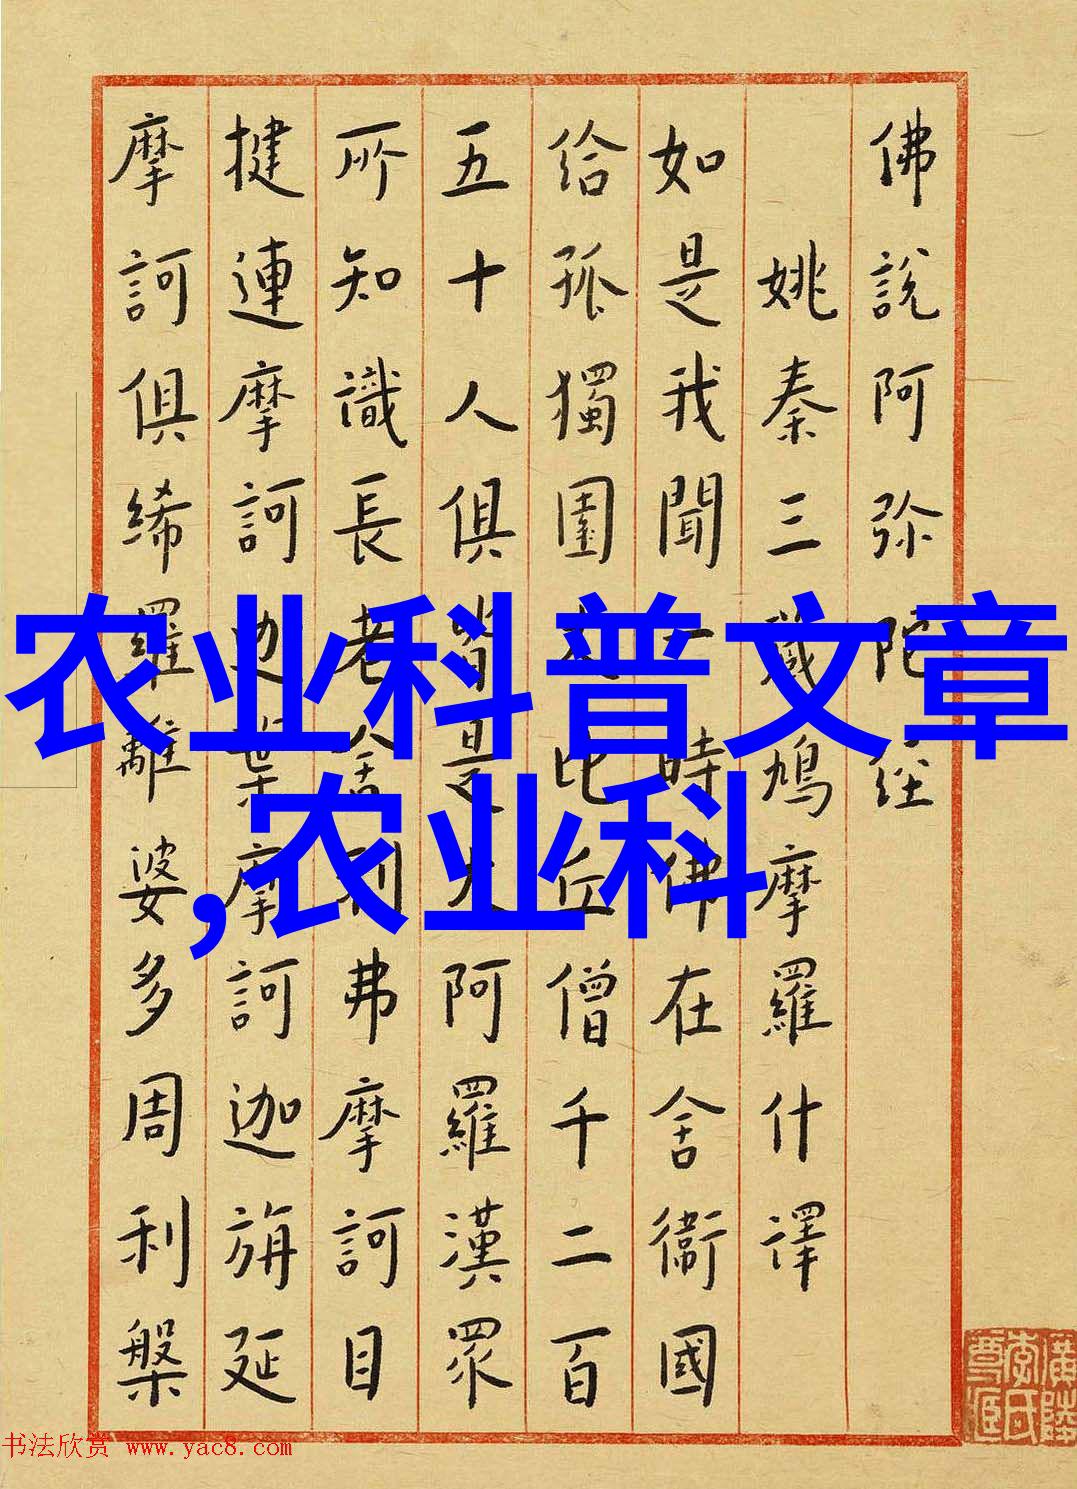 佛說阿弥陀経
姚秦三藏鳩摩羅什譯
如是我聞一時佛在舍衞國
給孤獨園大比丘僧千二百
五十人俱皆是大阿羅漢眾
所知識長老舍利弗摩訶目
揵連摩訶迦葉摩訶迦旃延
摩訶俱絺羅離婆多周利槃
农业科普文章
,农业科
书法欣赏 www.yac8.com